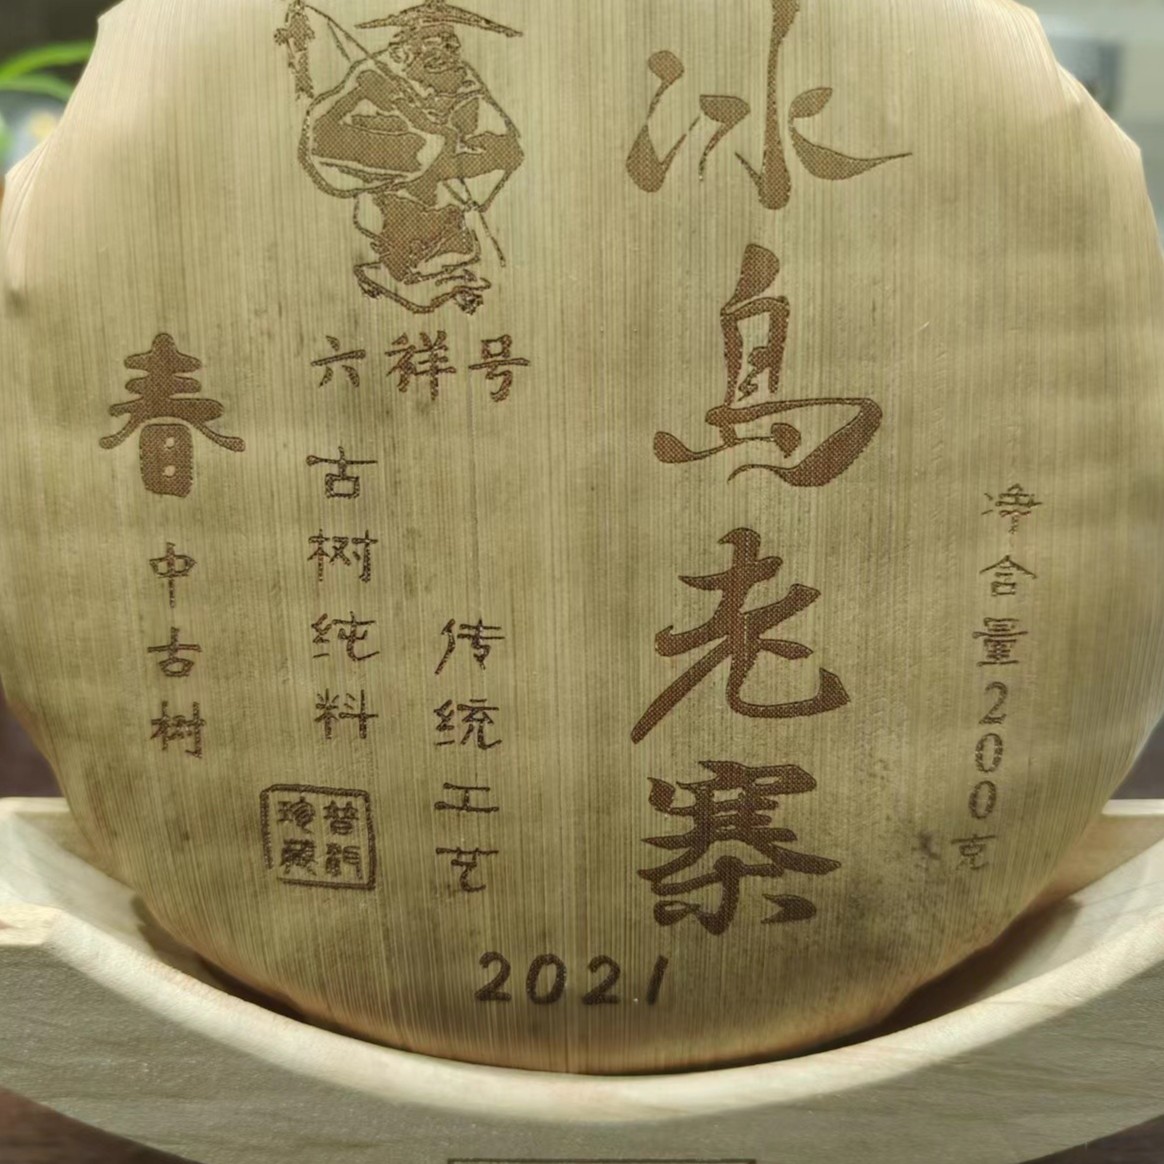 净含量200克
冰島老寨
六祥号
传统工艺
古树纯料
春
中古树
2021